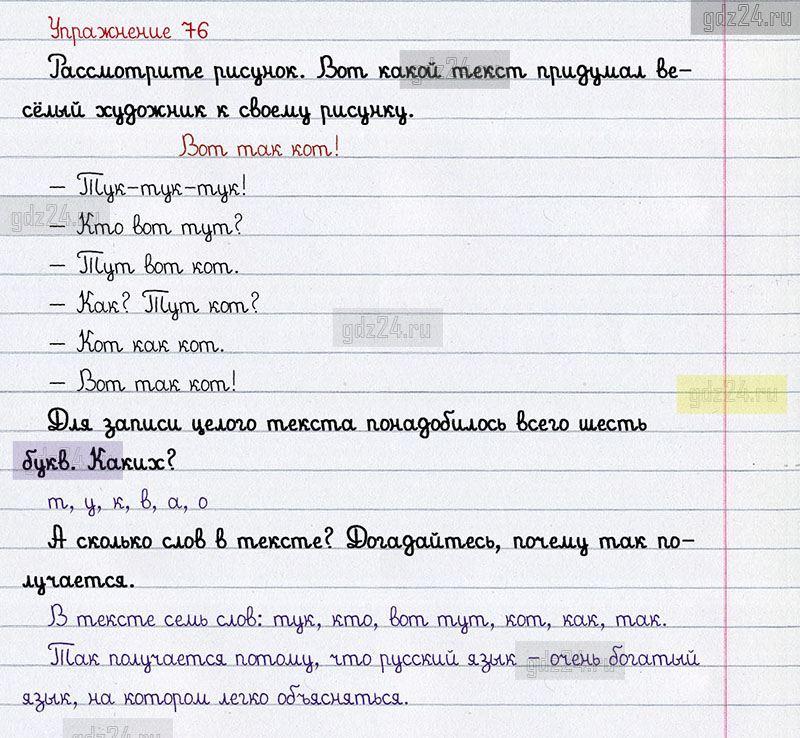 gdz24.ru
Упражнение 76
Рассмотрите рисунок. Вот какой текст придумал ве-
сёлый художник к своему рисунку.
Вот так кот!
– Тук-тук-тук!
– Кто вот тут?
– Тут вот кот.
– Как? Тут кот?
– Кот как кот.
– Вот так кот!
Для записи целого текста понадобилось всего шесть
букв. Каких?
т, у, к, в, а, о
А сколько слов в тексте? Догадайтесь, почему так по-
лучается.
В тексте семь слов: тук, кто, вот тут, кот, как, так.
Так получается потому, что русский язык – очень богатый
язык, на котором легко объясняться.
gdz24.ru